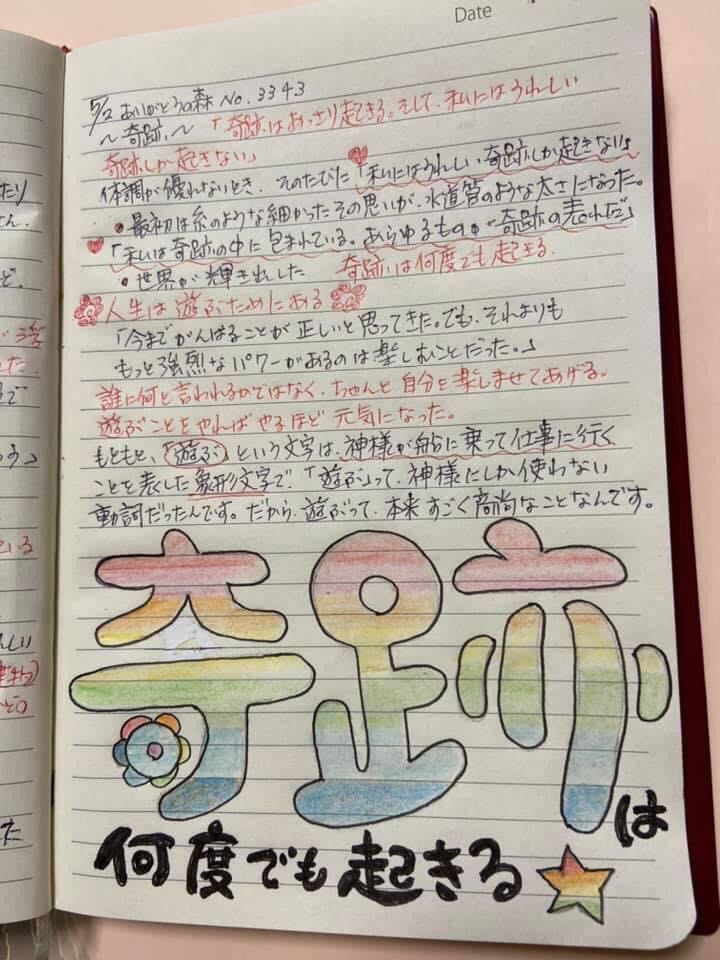 Date
5/2 ありがとうの森 No.3343
〜奇跡〜 「奇跡はあっさり起きる。そして、私にはうれしい
奇跡しか起きない」
体調が優れないとき、そのたびに「私にはうれしい奇跡しか起きない」
・最初は糸のような細かったその思いが、水道管のような太さになった。
「私は奇跡の中に包まれている。あらゆるものが奇跡の表れだ」
・世界が輝き出した 奇跡は何度でも起きる。
人生は遊ぶためにある
「今までがんばることが正しいと思ってきた。でも、それよりも
もっと強烈なパワーがあるのは楽しむことだった。」
誰に何と言われるかではなく、ちゃんと自分を楽しませてあげる。
遊ぶことをやればやるほど元気になった。
もともと、「遊ぶ」という文字は、神様が船に乗って仕事に行く
ことを表した象形文字で、「遊ぶ」って、神様にしか使わない
動詞だったんです。だから、遊ぶって、本来すごく高尚なことなんです。
奇跡は
何度でも起きる
たり
さん
ど、
で
う」
いる
しい
た